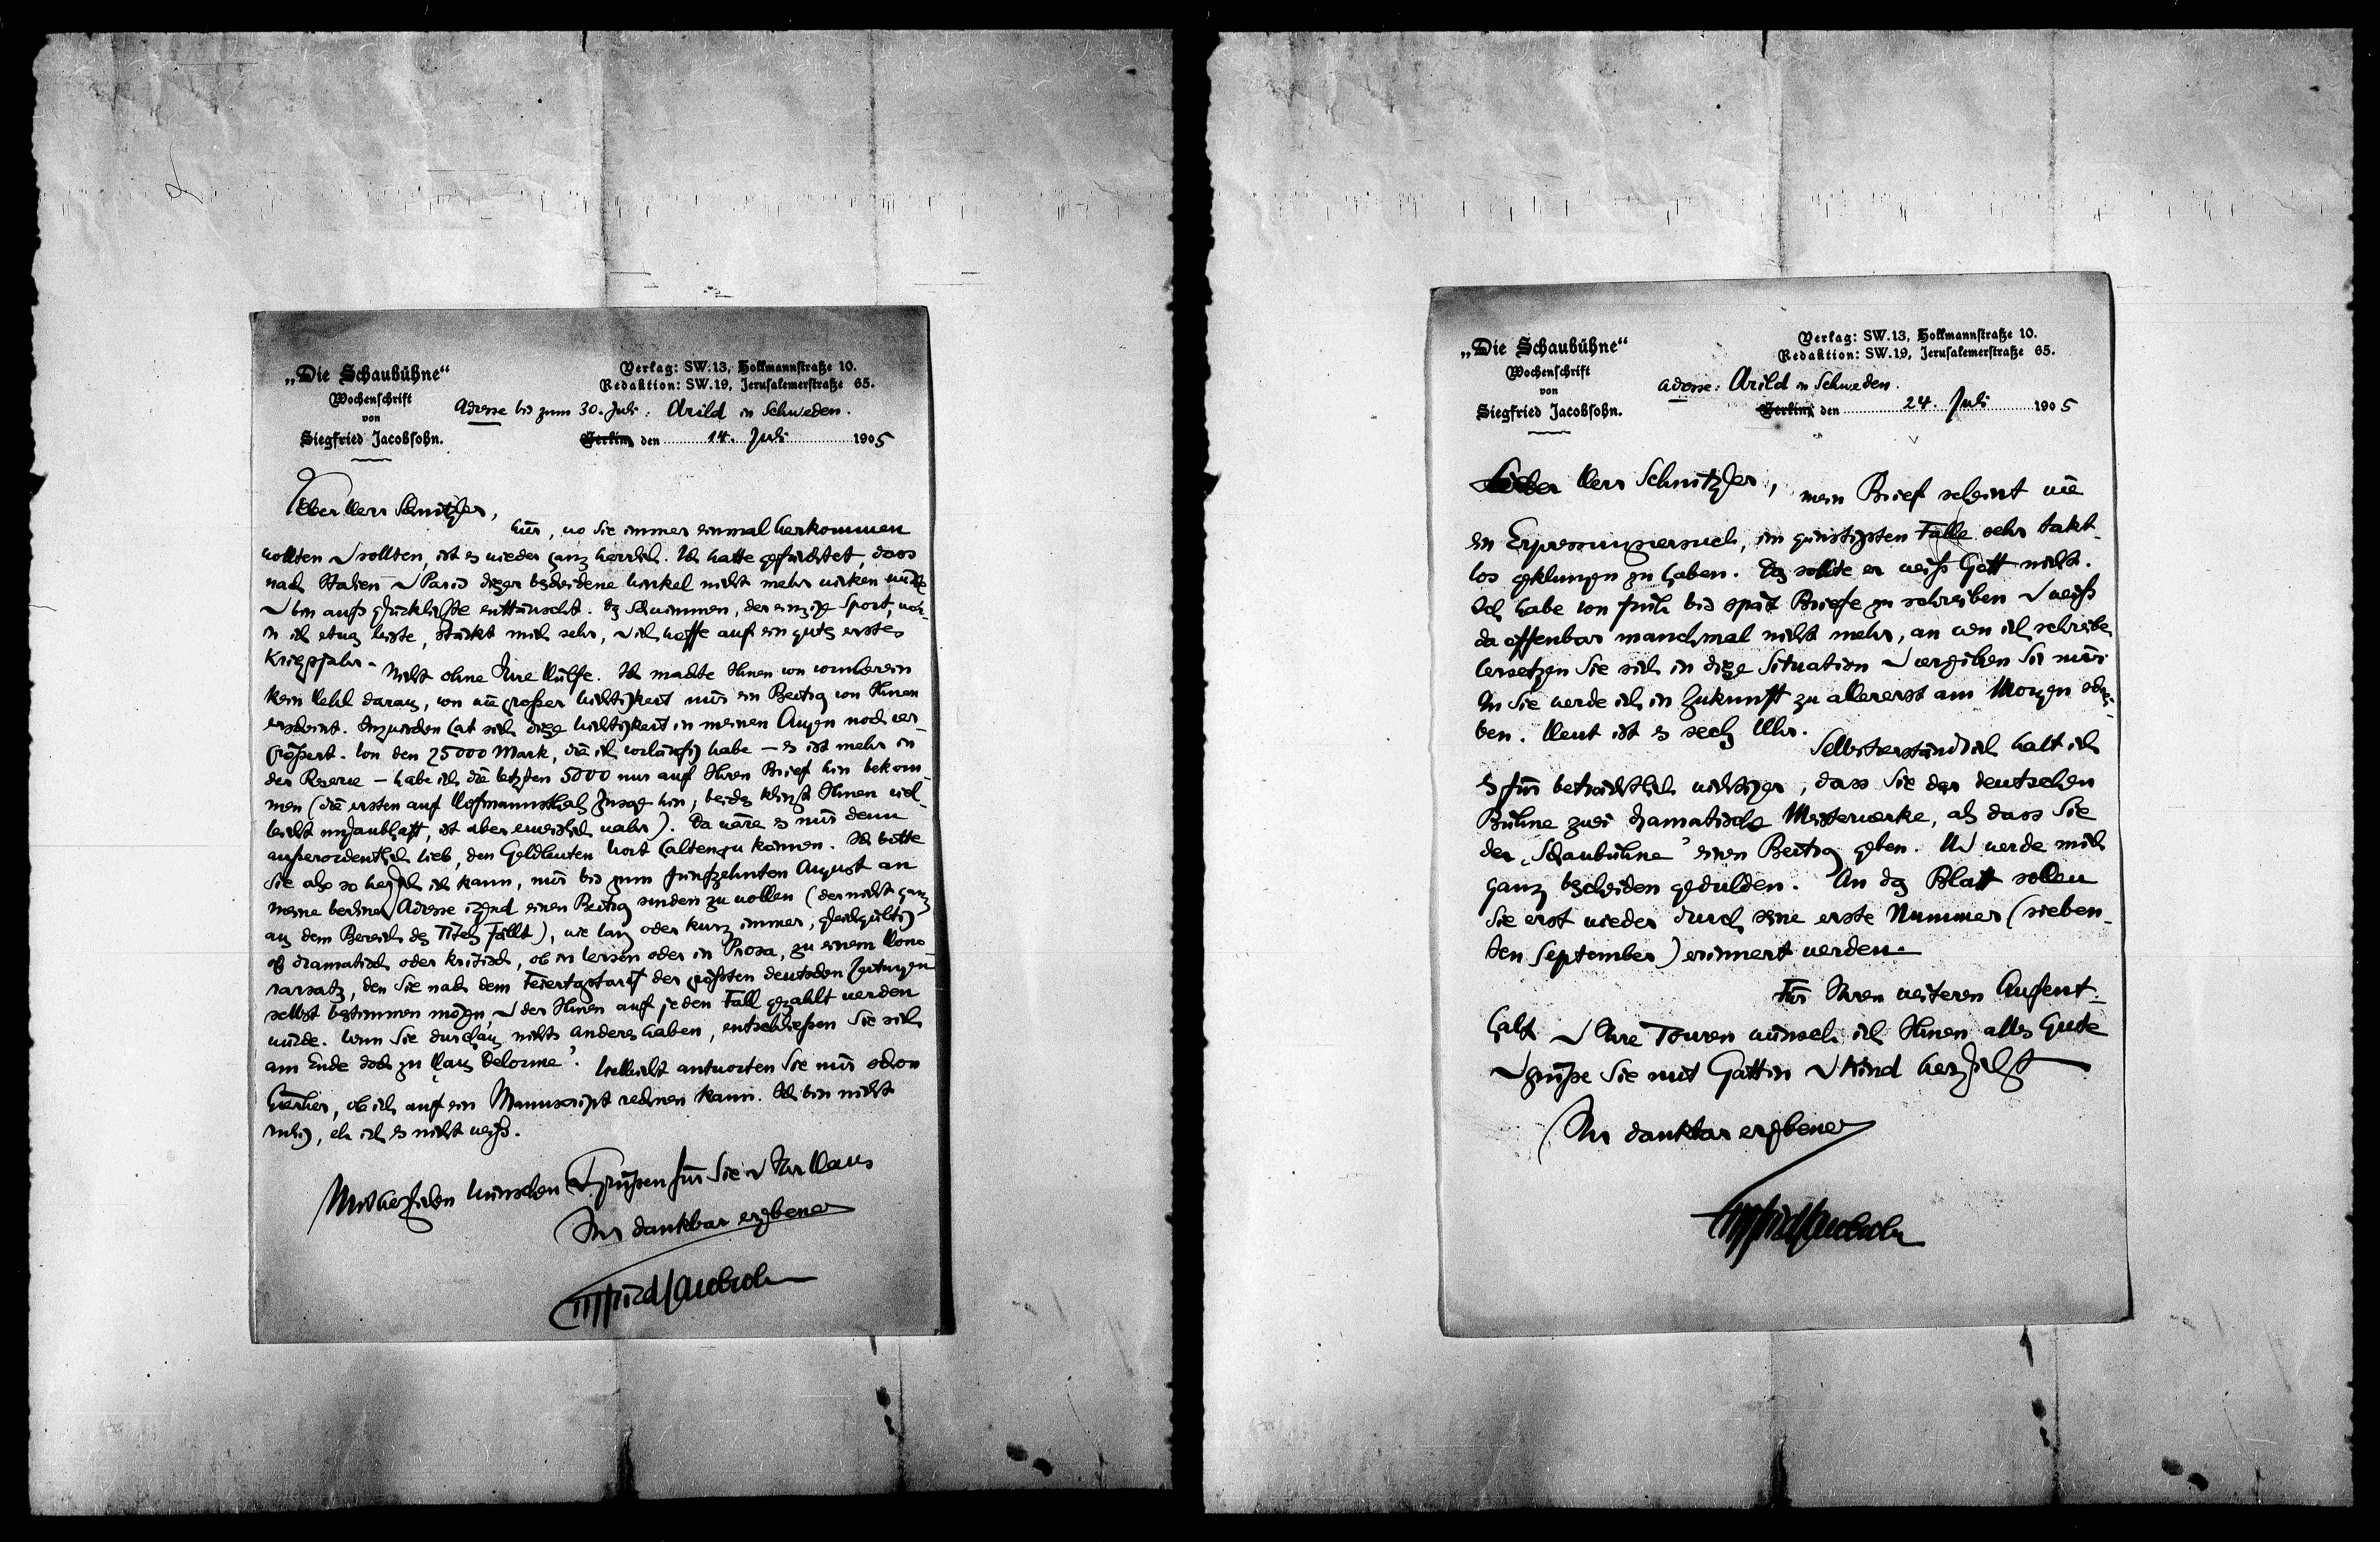 „Die Schaubühne“
Wochenschrift
von
Siegfried Jacobsohn.
Verlag: SW. 13, Hollmannstraße 10.
Redaktion: SW. 19, Jerusalemerstraße 65.
Adresse bis zum 30. Juli: Arild in Schweden.
Berlin, den 14. Juli 1905
Lieber Herr Schnitzler,
hier, wo Sie immer einmal herkommen
wollten u sollten, ist es wieder ganz herrlich. Ich hatte gefürchtet, dass
nach Italien u Paris dieser bescheidene Winkel nicht mehr wirken würde
u bin aufs glücklichste enttäuscht. Das Schwimmen, der einzige Sport, wor-
in ich etwas leiste, stärkt mich sehr, u ich hoffe auf ein gutes erstes
Kriegsjahr. Nicht ohne Ihre Hülfe. Ich machte Ihnen von vornherein
kein Hehl daraus, von wie großer Wichtigkeit mir ein Beitrag von Ihnen
erscheint. Inzwischen hat sich diese Wichtigkeit in meinen Augen noch ver-
größert. Von den 25000 Mark, die ich vorläufig habe – es ist mehr in
der Reserve – habe ich die letzten 5000 nur auf Ihren Brief hin bekom-
men (die ersten auf Hofmannsthals Zusage hin; beides klingt Ihnen viel-
leicht unglaubhaft, ist aber erweislich wahr). Da wäre es mir denn
außerordentlich lieb, den Geldleuten Wort halten zu können. Ich bitte
Sie also so herzlich ich kann, mir bis zum fünfzehnten August an
meine berliner Adresse irgend einen Beitrag senden zu wollen (der nicht ganz
aus dem Bereich des Titels fällt), wie lang oder kurz immer, gleichgültig
ob dramatisch oder kritisch, ob in Versen oder in Prosa, zu einem Hono-
rarsatz, den Sie nach dem Feiertagstarif der größten deutschen Zeitungen
selbst bestimmen mögen u der Ihnen auf jeden Fall gezahlt werden
würde. Wenn Sie durchaus nichts anderes haben, entschließen Sie sich
am Ende doch zu ‚Haus Delorme‘. Vielleicht antworten Sie mir schon
hierher, ob ich auf ein Manuscript rechnen kann. Ich bin nicht
ruhig, eh ich es nicht weiß.
Mit herzlichen Wünschen u Grüßen für Sie u Ihr Haus
Ihr dankbar ergebener
Siegfried Jacobsohn
„Die Schaubühne“
Wochenschrift
von
Siegfried Jacobsohn.
Verlag: SW. 13, Hollmannstraße 10.
Redaktion: SW. 19, Jerusalemerstraße 65.
Adresse: Arild in Schweden.
Berlin, den 24. Juli 1905
Lieber Herr Schnitzler, mein Brief scheint wie
ein Erpressungsversuch, im günstigsten Falle sehr takt-
los geklungen zu haben. Das sollte er weiß Gott nicht.
Ich habe von früh bis spät Briefe zu schreiben u weiß
da offenbar manchmal nicht mehr, an wen ich schreibe.
Versetzen Sie sich in diese Situation u verzeihen Sie mir.
An Sie werde ich in Zukunft zu allererst am Morgen schrei-
ben. Heut ist es sechs Uhr.
Selbstverständlich halt ich
es für beträchtlich wichtiger, dass Sie der deutschen
Bühne zwei dramatische Meisterwerke, als dass Sie
der ‚Schaubühne‘ einen Beitrag geben. Ich werde mich
ganz bescheiden gedulden. An das Blatt sollen
Sie erst wieder durch seine erste Nummer (sieben-
ten September) erinnert werden.
Für Ihren weiteren Aufent-
halt u Ihre Touren wünsch ich Ihnen alles Gute
u grüße Sie mit Gattin u Kind herzlichst
Ihr dankbar ergebener
Siegfried Jacobsohn